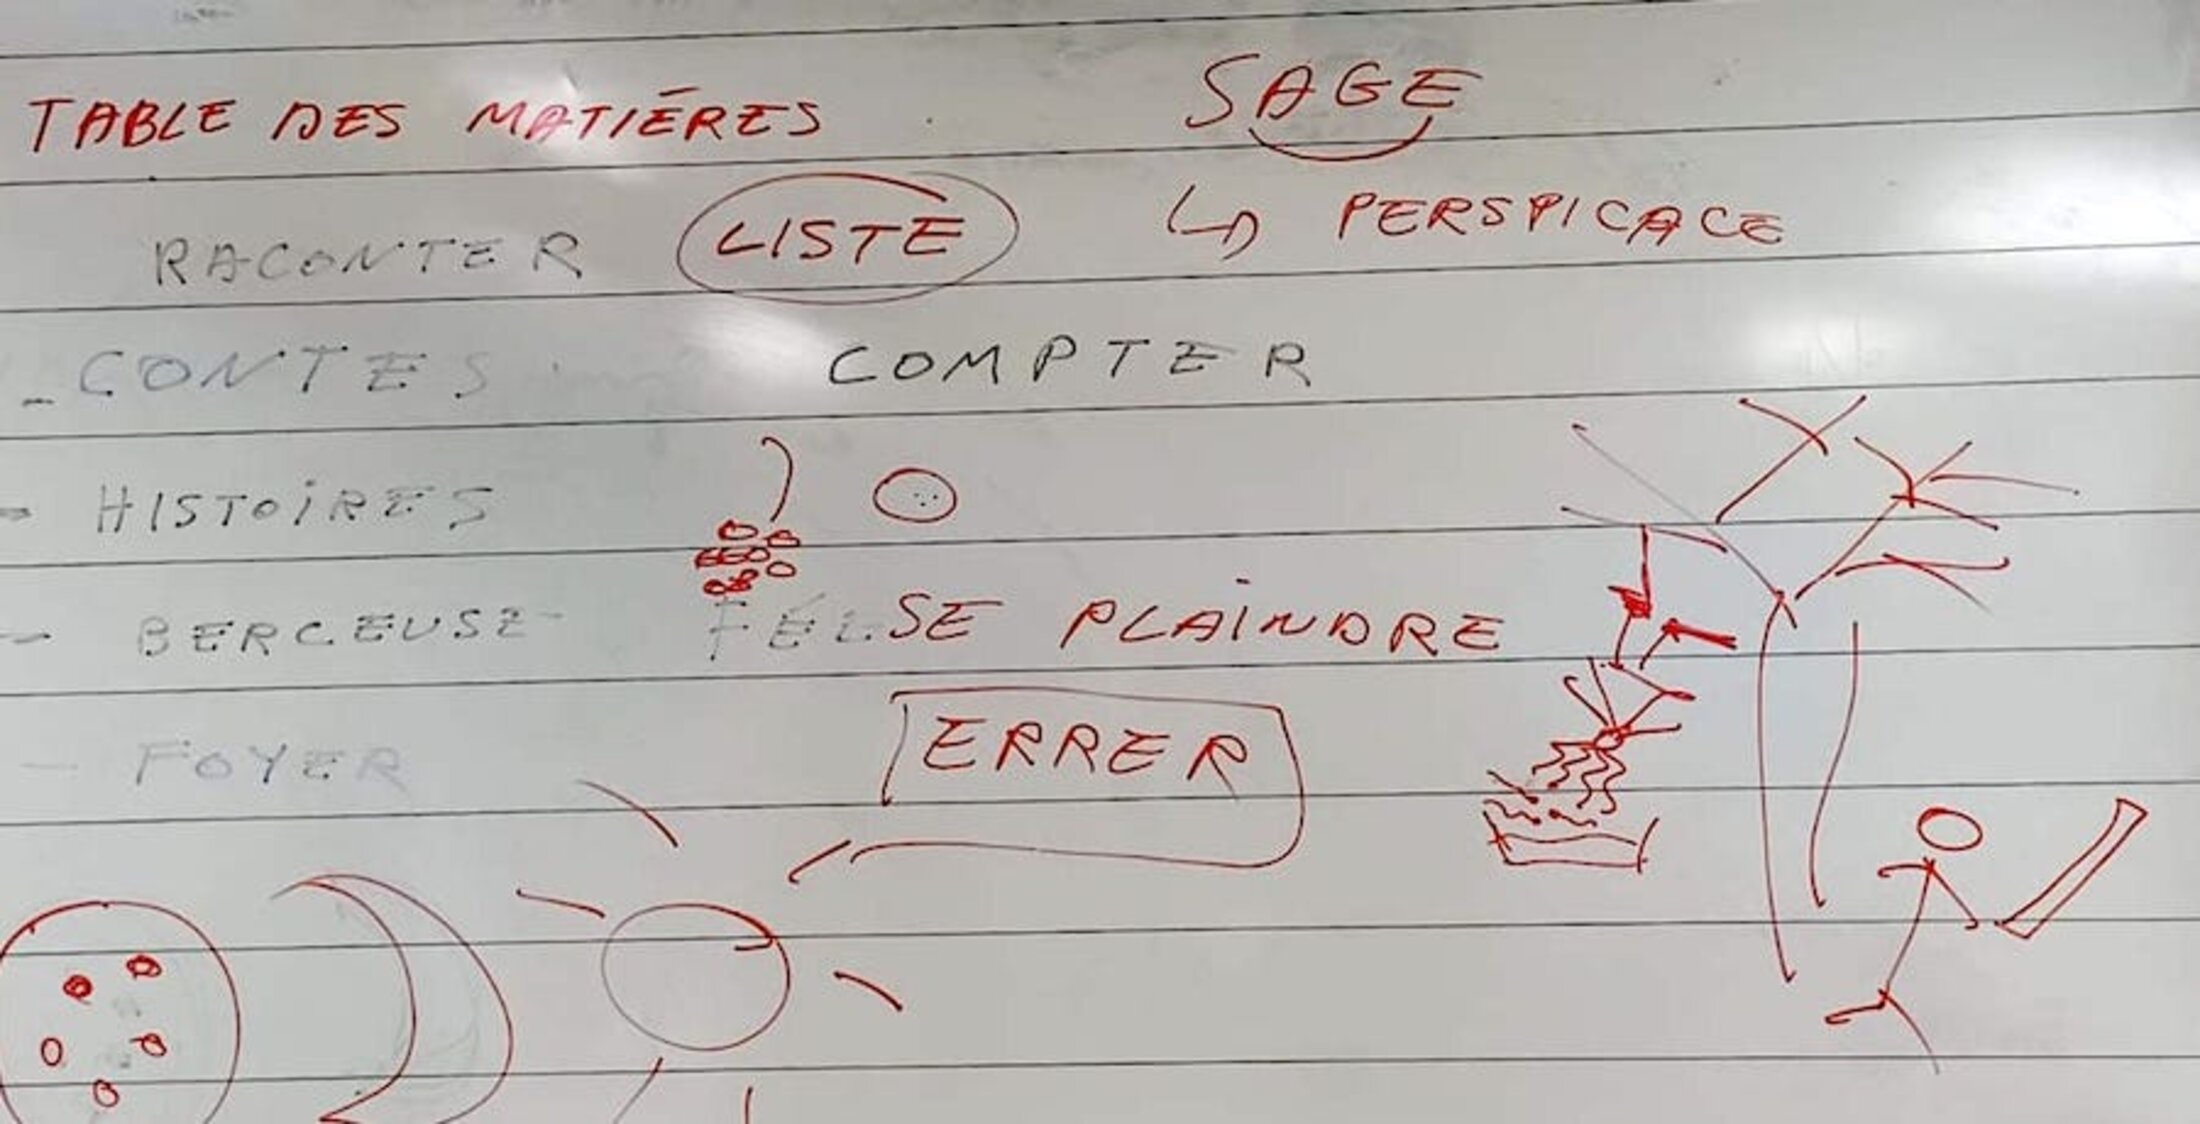 TABLE DES MATIÈRES
SAGE
RACONTER
LISTE
↳ PERSPICACE
- CONTES
COMPTER
- HISTOIRES
- BERCEUSE
SE PLAINDRE
- FOYER
ERRER